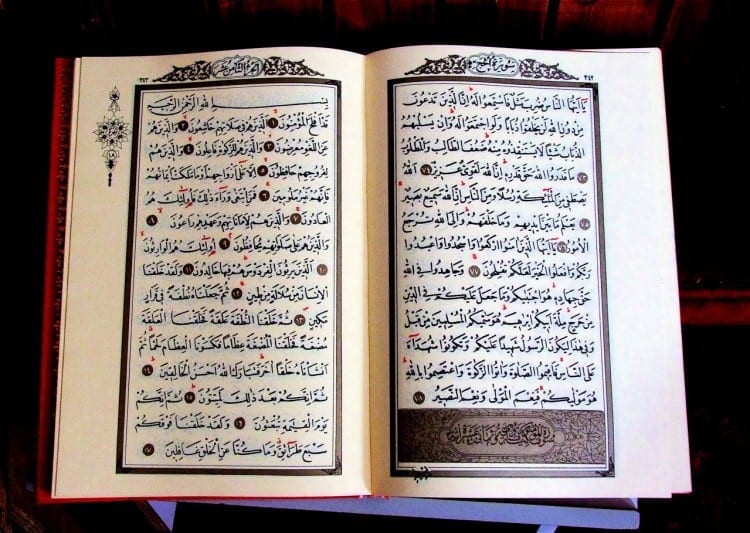 سُورَةُ الْحَجِّ
يَا أَيُّهَا النَّاسُ ضُرِبَ مَثَلٌ فَاسْتَمِعُوا لَهُ إِنَّ الَّذِينَ تَدْعُونَ
مِنْ دُونِ اللَّهِ لَنْ يَخْلُقُوا ذُبَابًا وَلَوِ اجْتَمَعُوا لَهُ وَإِنْ يَسْلُبْهُمُ
الذُّبَابُ شَيْئًا لَا يَسْتَنْقِذُوهُ مِنْهُ ضَعُفَ الطَّالِبُ وَالْمَطْلُوبُ
٧٣ مَا قَدَرُوا اللَّهَ حَقَّ قَدْرِهِ إِنَّ اللَّهَ لَقَوِيٌّ عَزِيزٌ ٧٤ اَللَّهُ
يَصْطَفِي مِنَ الْمَلٰئِكَةِ رُسُلًا وَمِنَ النَّاسِ إِنَّ اللَّهَ سَمِيعٌ بَصِيرٌ
٧٥ يَعْلَمُ مَا بَيْنَ أَيْدِيهِمْ وَمَا خَلْفَهُمْ وَإِلَى اللَّهِ تُرْجَعُ
الْأُمُورُ ٧٦ يَا أَيُّهَا الَّذِينَ آمَنُوا ارْكَعُوا وَاسْجُدُوا وَاعْبُدُوا
رَبَّكُمْ وَافْعَلُوا الْخَيْرَ لَعَلَّكُمْ تُفْلِحُونَ ٧٧ وَجَاهِدُوا فِي اللَّهِ
حَقَّ جِهَادِهِ هُوَ اجْتَبٰيكُمْ وَمَا جَعَلَ عَلَيْكُمْ فِي الدِّينِ
مِنْ حَرَجٍ مِلَّةَ أَبِيكُمْ إِبْرٰهِيمَ هُوَ سَمّٰيكُمُ الْمُسْلِمِينَ مِنْ قَبْلُ
وَفِي هٰذَا لِيَكُونَ الرَّسُولُ شَهِيدًا عَلَيْكُمْ وَتَكُونُوا شُهَدَاءَ
عَلَى النَّاسِ فَأَقِيمُوا الصَّلٰوةَ وَآتُوا الزَّكٰوةَ وَاعْتَصِمُوا بِاللَّهِ
هُوَ مَوْلٰيكُمْ فَنِعْمَ الْمَوْلٰى وَنِعْمَ النَّصِيرُ ٧٨
اَلْجُزْءُ الثَّامِنُ عَشَرَ
بِسْمِ اللَّهِ الرَّحْمٰنِ الرَّحِيمِ
قَدْ أَفْلَحَ الْمُؤْمِنُونَ ١ اَلَّذِينَ هُمْ فِي صَلَاتِهِمْ خَاشِعُونَ ٢ وَالَّذِينَ هُمْ
عَنِ اللَّغْوِ مُعْرِضُونَ ٣ وَالَّذِينَ هُمْ لِلزَّكٰوةِ فَاعِلُونَ ٤ وَالَّذِينَ هُمْ
لِفُرُوجِهِمْ حَافِظُونَ ٥ إِلَّا عَلٰى أَزْوَاجِهِمْ أَوْ مَا مَلَكَتْ أَيْمَانُهُمْ
فَإِنَّهُمْ غَيْرُ مَلُومِينَ ٦ فَمَنِ ابْتَغٰى وَرَاءَ ذٰلِكَ فَأُولٰئِكَ هُمُ
الْعَادُونَ ٧ وَالَّذِينَ هُمْ لِأَمَانَاتِهِمْ وَعَهْدِهِمْ رَاعُونَ ٨
وَالَّذِينَ هُمْ عَلٰى صَلَوَاتِهِمْ يُحَافِظُونَ ٩ أُولٰئِكَ هُمُ الْوَارِثُونَ
١٠ اَلَّذِينَ يَرِثُونَ الْفِرْدَوْسَ هُمْ فِيهَا خَالِدُونَ ١١ وَلَقَدْ خَلَقْنَا
الْإِنْسَانَ مِنْ سُلَالَةٍ مِنْ طِينٍ ١٢ ثُمَّ جَعَلْنَاهُ نُطْفَةً فِي قَرَارٍ
مَكِينٍ ١٣ ثُمَّ خَلَقْنَا النُّطْفَةَ عَلَقَةً فَخَلَقْنَا الْعَلَقَةَ
مُضْغَةً فَخَلَقْنَا الْمُضْغَةَ عِظَامًا فَكَسَوْنَا الْعِظَامَ لَحْمًا ثُمَّ
أَنْشَأْنَاهُ خَلْقًا آخَرَ فَتَبَارَكَ اللَّهُ أَحْسَنُ الْخَالِقِينَ ١٤
ثُمَّ إِنَّكُمْ بَعْدَ ذٰلِكَ لَمَيِّتُونَ ١٥ ثُمَّ إِنَّكُمْ
يَوْمَ الْقِيٰمَةِ تُبْعَثُونَ ١٦ وَلَقَدْ خَلَقْنَا فَوْقَكُمْ
سَبْعَ طَرَائِقَ وَمَا كُنَّا عَنِ الْخَلْقِ غَافِلِينَ ١٧